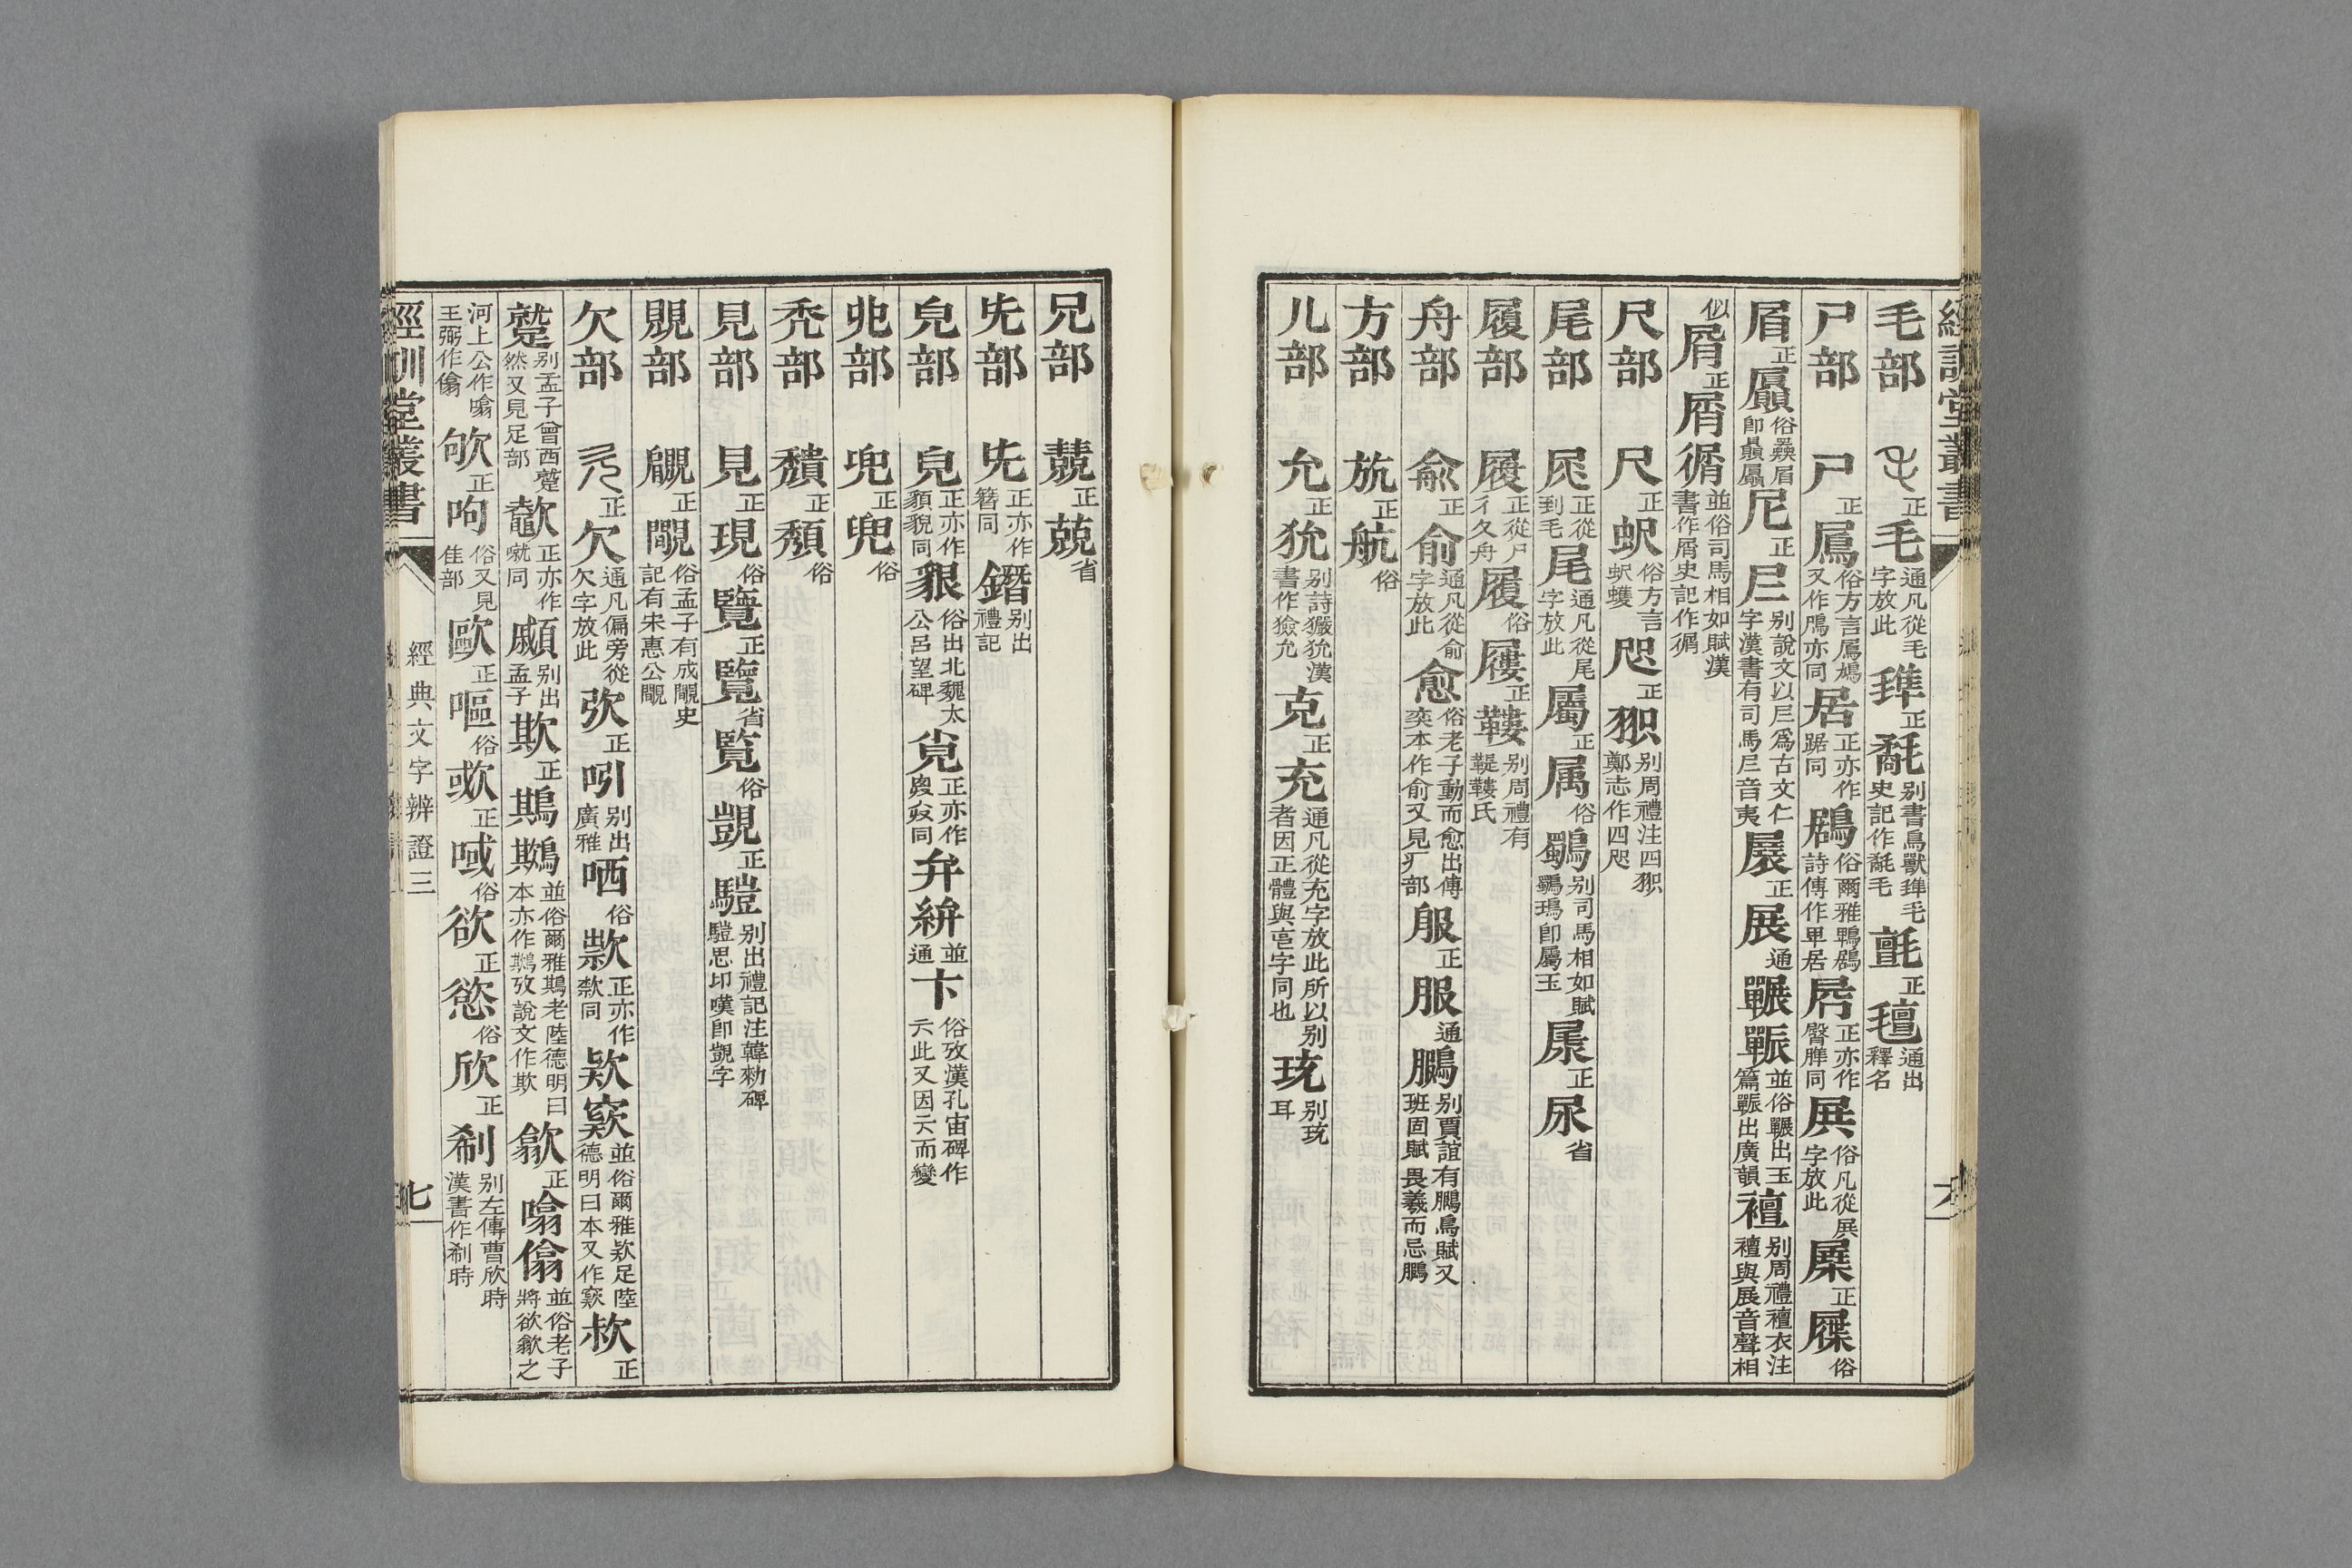 毛部 毛正毛通凡從毛字放此 𣯍正毻别書鳥獸𣯍毛史記作毻毛 㲲正氊通出釋名
尸部 尸正鳲俗方言鳲鳩又作鳲亦同 居正亦作踞同 鶋俗爾雅鵯鶋詩傳作卑居 㞐正亦作臀脽同 㞡俗凡從展字放此 屟正屧俗
眉正屭俗奰眉卽贔屭 尼正𡰥别說文以𡰥爲古文仁字漢書有司馬𡰥音夷 展正展通 䡀䡅並俗䡀出玉篇䡅出廣韻 襢别周禮襢衣注襢與展音聲相
似 屑正屑𢕺並俗司馬相如賦漢書作屑史記作𢕺
尺部 尺正蚇俗方言蚇蠖 咫正𤝐别周禮注四𤝐鄭志作四咫
尾部 尾正從到毛尾通凡從尾字放此 屬正属俗 鸀别司馬相如賦鸀瑦卽屬玉 㞙正尿省
履部 履正從尸彳夂舟履俗 屨正䩱别周禮有鞮䩱氏
舟部 俞正俞通凡從俞字放此 愈俗老子動而愈出傅奕本作俞又見疒部 服正服通 鵩别賈誼有鵩鳥賦又班固賦畏羲而忌鵩
方部 斻正航俗
儿部 允正狁别詩玁狁漢書作獫允 克正充通凡從充字放此所以别者因正體與㐬字同也 珫别珫耳
兄部 兢正兢省
兂部 兂正亦作簪同 鐕别出禮記
皃部 皃正亦作䫉貌同 䝞俗出北魏太公呂望碑 覍正亦作𠬸同 弁絣並通 卞俗攷漢孔宙碑作亣此又因亣而變
𠑹部 兜正兜俗
禿部 穨正頹俗
見部 見正現俗 覽正覽省覧俗 覬正䮗别出禮記注韓勑碑䮗思卬嘆卽覬字
覞部 覸正覵俗孟子有成覵史記有宋惠公覵
欠部 欠正欠通凡偏旁從欠字放此 弞正吲别出廣雅哂俗 款正亦作欵同 欵窾並俗爾雅欵足陸德明曰本又作窾 欶正
蹵别孟子曾西蹵然又見足部 歗正亦作嘯同 顑别出孟子 欺正鶀鶀並俗爾雅鶀老陸德明曰本亦作鶀攷說文作欺 歙正噏㒆並俗老子將欲歙之
河上公作噏王弼作㒆 欨正呴俗又見隹部 歐正嘔俗 㰲正㖪俗 欲正慾俗 欣正𠜾别左傳曹欣時漢書作𠜾時
經訓堂叢書
經典文字辨證三
七